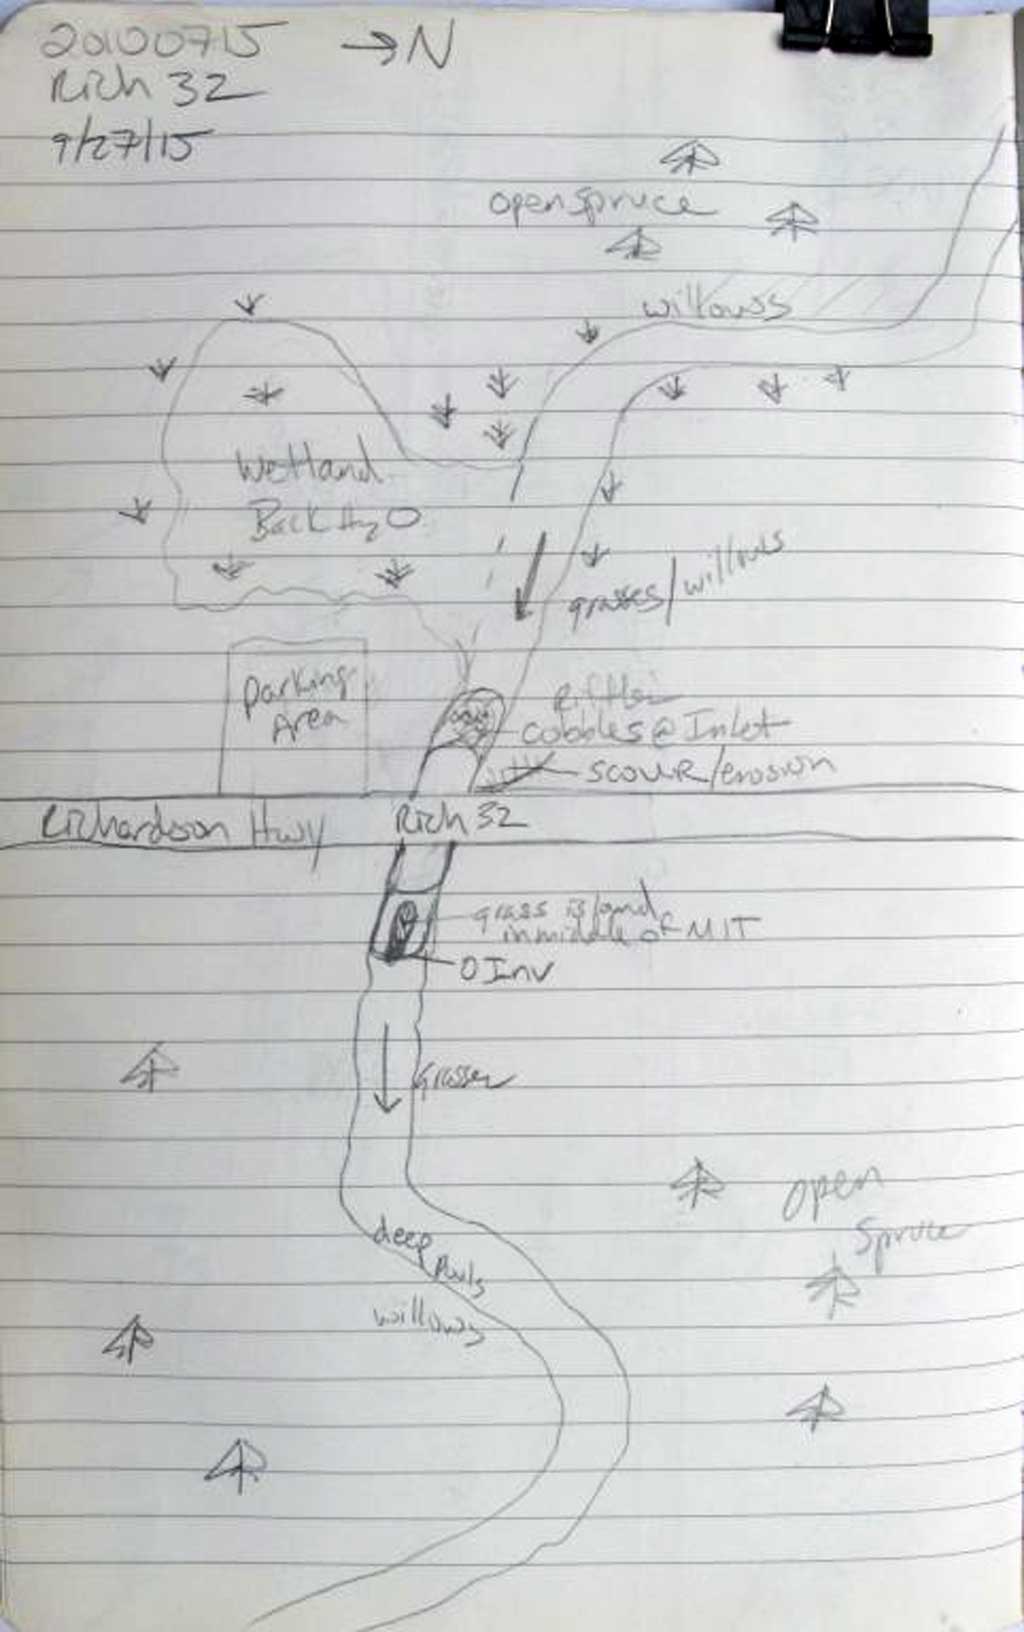 20100715 → N
Rich 32
9/27/15
open spruce
willows
Wetland
Back H2O
grasses/willows
Parking
Area
cobbles @ Inlet
scour/erosion
Richardson Hwy
Rich 32
grass island
in middle of MIT
O Inv
Grasses
open
spruce
deep
pools
willows